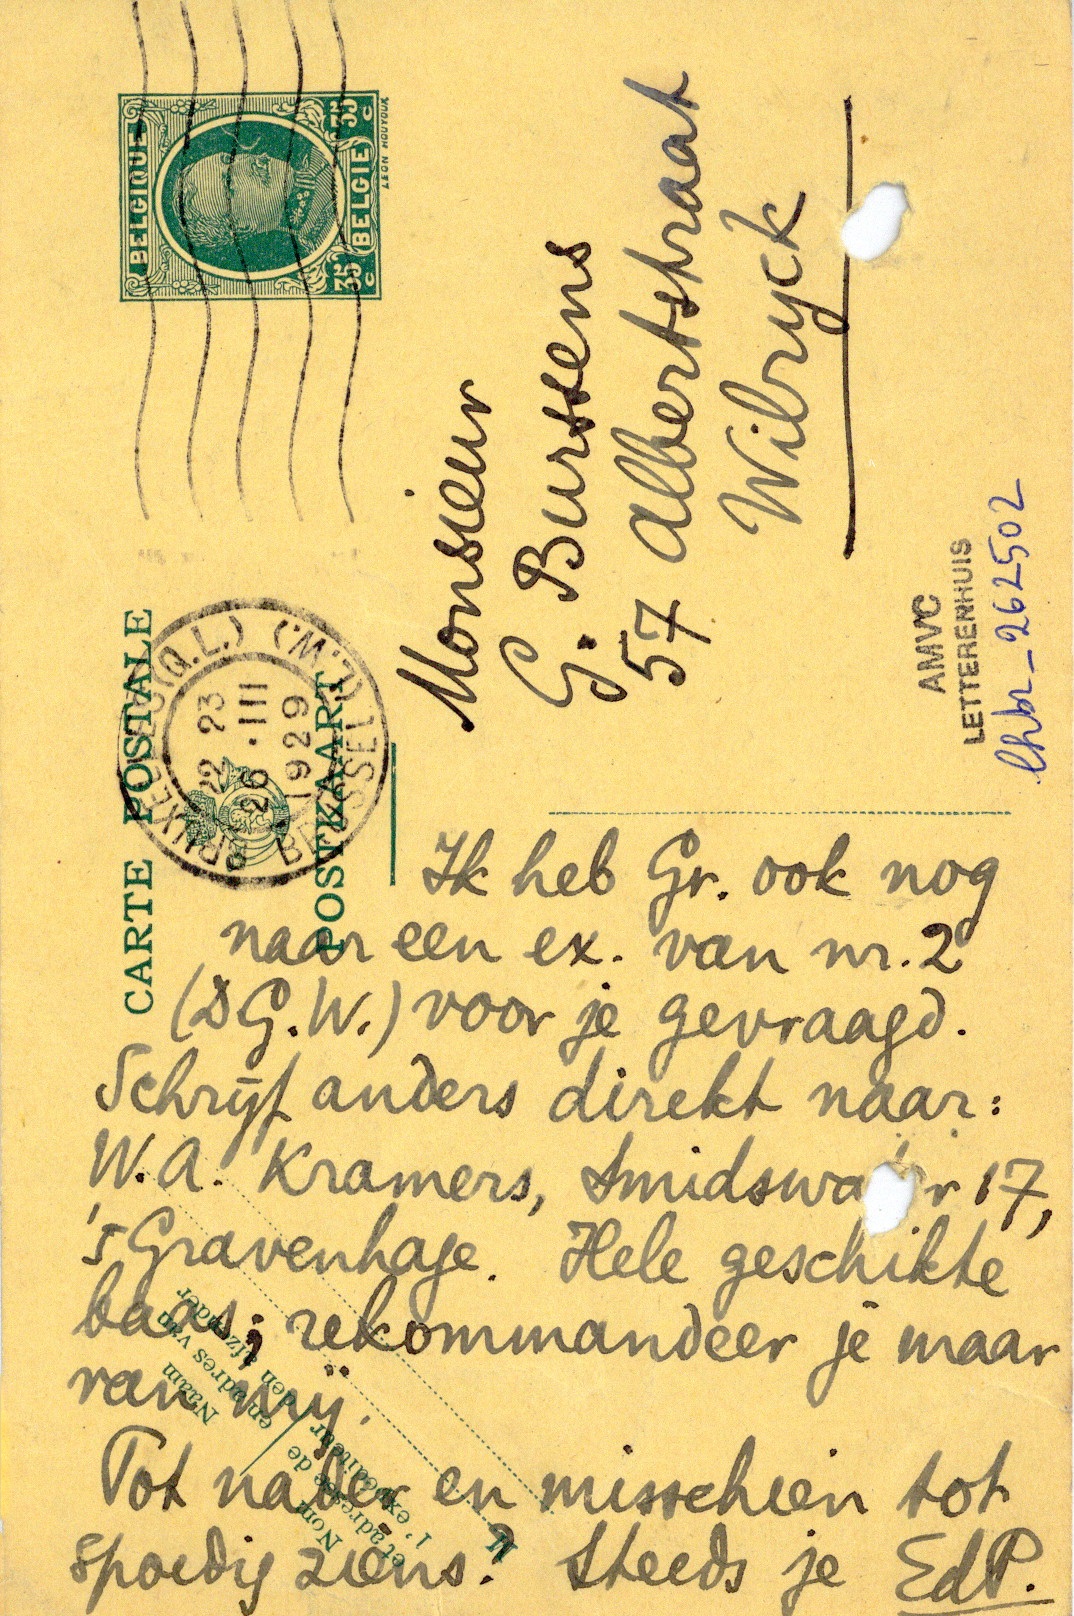 BELGIQUE
BELGIE
35 C
35 C
LEON HOUYOUX
CARTE POSTALE
POSTKAART
22 23
26 · III
1929
Monsieur
G. Burssens
57 Albertstraat
Wilryck
AMVC
LETTERENHUIS
lhbr_262502
Ik heb Gr. ook nog
naar een ex. van nr. 2
(D G. W.) voor je gevraagd.
Schrijf anders direkt naar:
W.A. Kramers, 17,
's Gravenhage. Hele geschikte
baas; rekommandeer je maar
van mij.
Tot nader en misschien tot
spoedig ziens? Steeds je EdP.
Naam
en adres van
den afzender
Nom
et adresse de
l'expéditeur